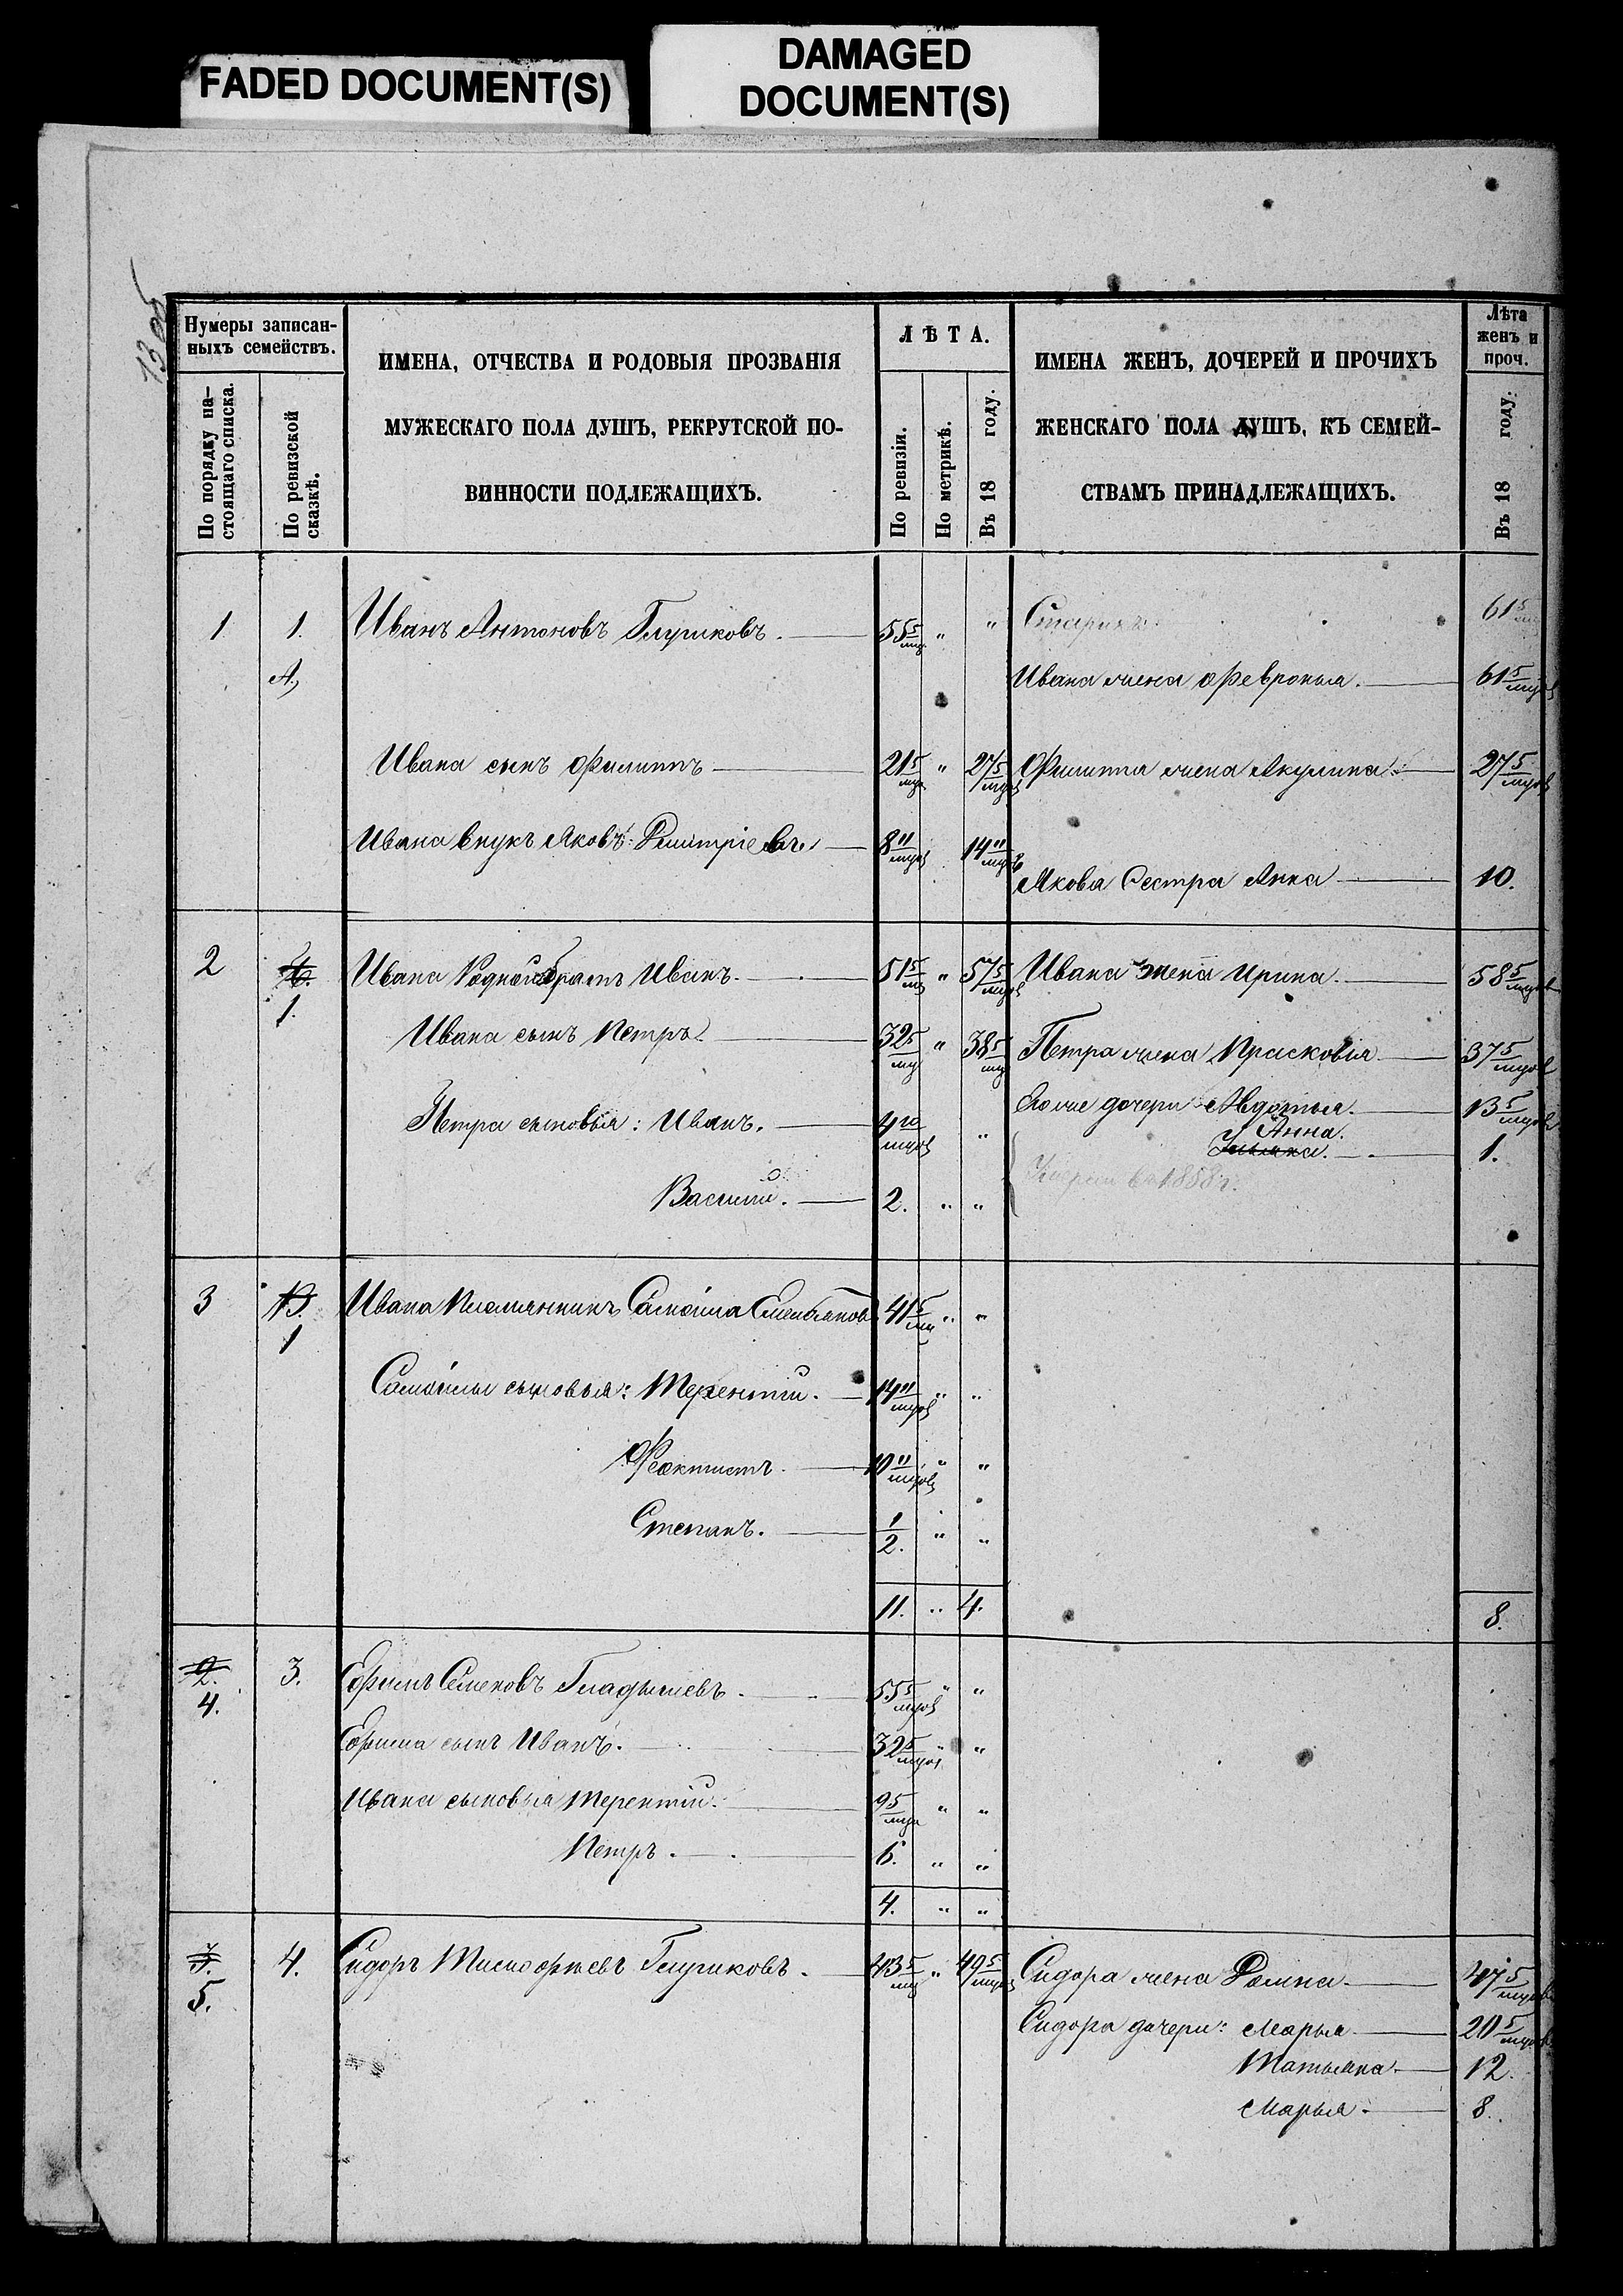 FADED DOCUMENT(S)
DAMAGED
DOCUMENT(S)
Нумеры записан-
ныхъ семействъ.
По порядку на-
стоящаго списка.
По ревизской
сказкѣ.
ИМЕНА, ОТЧЕСТВА И РОДОВЫЯ ПРОЗВАНІЯ
МУЖЕСКАГО ПОЛА ДУШЪ, РЕКРУТСКОЙ ПО-
ВИННОСТИ ПОДЛЕЖАЩИХЪ.
ЛѢТА.
По ревизіи.
По метрикѣ.
Въ 18 году.
ИМЕНА ЖЕНЪ, ДОЧЕРЕЙ И ПРОЧИХЪ
ЖЕНСКАГО ПОЛА ДУШЪ, КЪ СЕМЕЙ-
СТВАМЪ ПРИНАДЛЕЖАЩИХЪ.
Лѣта
женъ и
проч.
Въ 18 году.
1 1. Иванъ Антоновъ Глушковъ. 55 5 " " 61 5
А. Ивана жена Февронья. 61 5
Ивана сынъ Филиппъ 21 5 " 27 5 Филиппа жена Акулина 27 5
Ивана внукъ Яковъ Дмитріевъ 8 11 14 11
Якова Сестра Анна 10.
2 Ивана Родной братъ Иванъ. 51 5 " 57 5 Ивана жена Ирина. 58 5
1. Ивана сынъ Петръ 32 5 " 38 5 Петра жена Прасковья 37 5
Его же дочери Авдотья. 13 5
Петра сыновья: Иванъ. 4 10 " Анна.
1.
Василій. 2. " " 1858 г.
3 В. Ивана Племянникъ Самойла Емельяновъ 41 5 " "
1
Самойлы сыновья: Терентій. 14 11 " "
Феоктистъ. 10 11 " "
Степанъ. 1/2. " "
11. " 4. 8.
2. 3. Ефимъ Семеновъ Гладышевъ. 55 5 " "
4.
Ефима сынъ Иванъ. 32 5 " "
Ивана сыновья Терентій. 9 5 " "
Петръ. 6. " "
4. " "
3. 4. Сидоръ Тимофѣевъ Глушковъ. 43 5 " 49 5 Сидора жена Домна 47 5
5. Сидора дочери: Марья 20 5
Татьяна 12.
Марья. 8.